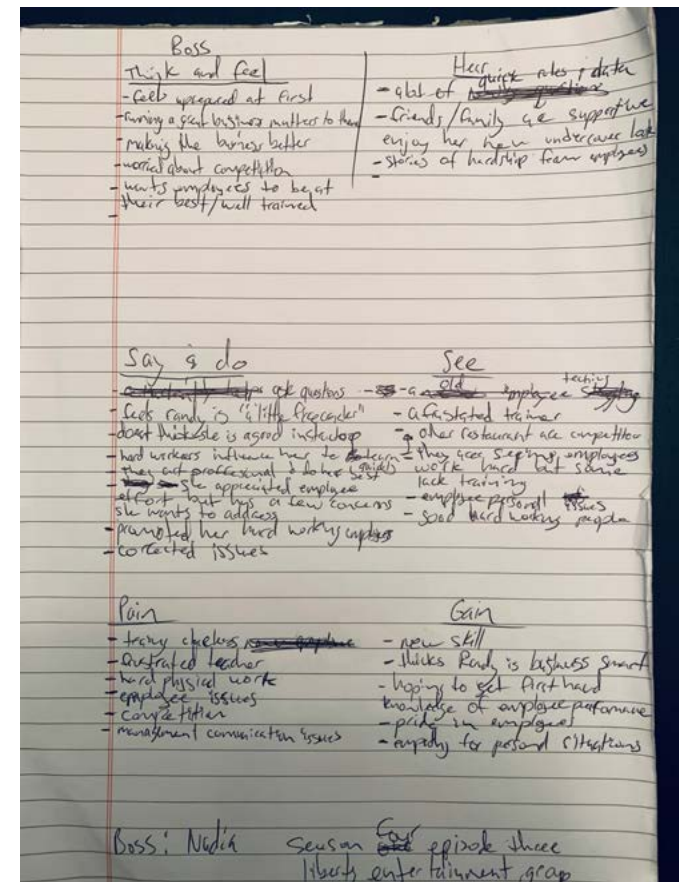 Boss
Think and feel
- feels unprepared at first
- running a great business matters to them
- making the business better
- worried about competition
- wants employees to be at
their best/well trained
-
Hear
- alot of quick rules & data
- friends/family are supportive
enjoy her new undercover look
- stories of hardship from employees
-
Say & do
- ask questions
- feels randy is "a little firecracker"
- doesnt think she is a good instructor
- hard workers influence her to learn
quickly
- they act proffessional & do her best
- she appreciated employee
effort but has a few concerns
she wants to address
- promoted her hard working employees
- corrected issues
See
- a old employee teaching
- a frustrated trainer
- other restaurant are competitor
- they are seeing employees
work hard but some
lack training
- employee personal issues
- good hard working people
Pain
- training
- frustrated teacher
- hard physical work
- employee issues
- competition
- management comunication issues
Gain
- new skill
- thinks Randy is business smart
- hoping to get first hand
knowledge of employee performance
- pride in employees
- empathy for personal situations
Boss: Nadia
season four episode three
liberty entertainment group